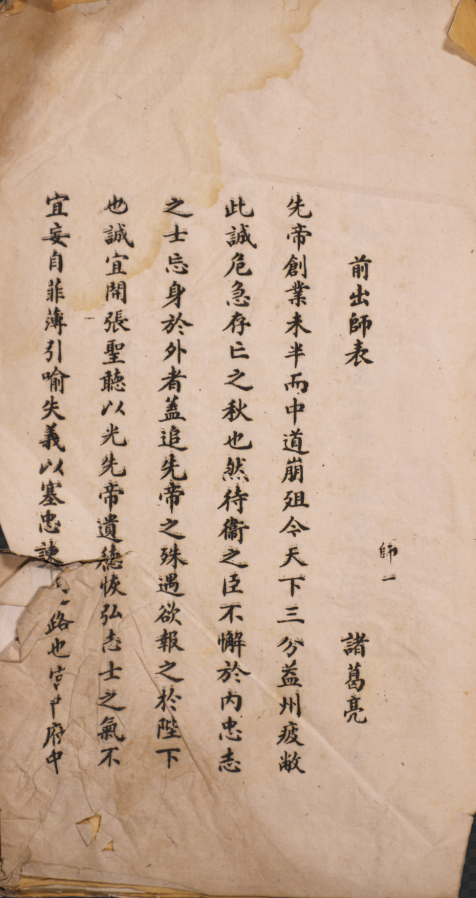 前出師表 諸葛亮
師一
先帝創業未半而中道崩殂今天下三分益州疲敝
此誠危急存亡之秋也然待衞之臣不懈於內忠志
之士忘身於外者蓋追先帝之殊遇欲報之於陛下
也誠宜開張聖聽以光先帝遺德恢弘志士之氣不
宜妄自菲薄引喻失義以塞忠諫路也宮中府中